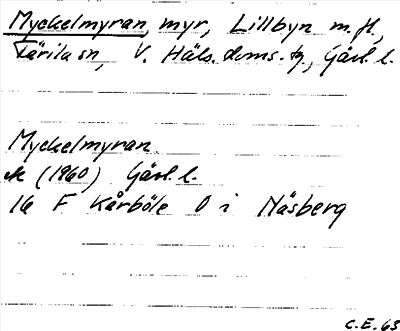 Myckelmyran, myr, Lillbyn m.fl.,
Färila sn, V. Häls. doms. tg, Gävl. l.
Myckelmyran
ek (1960) Gävl. l.
16 F Kårböle O i Näsberg
C.E. 63